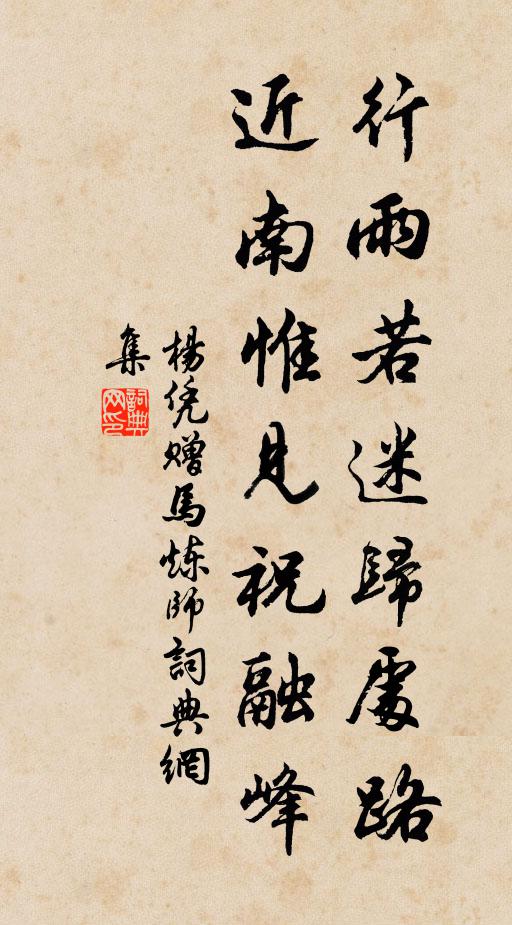 行雨若迷歸處路
近南惟見祝融峰
楊凭贈馬炼師詞典網
集
詞典
网印